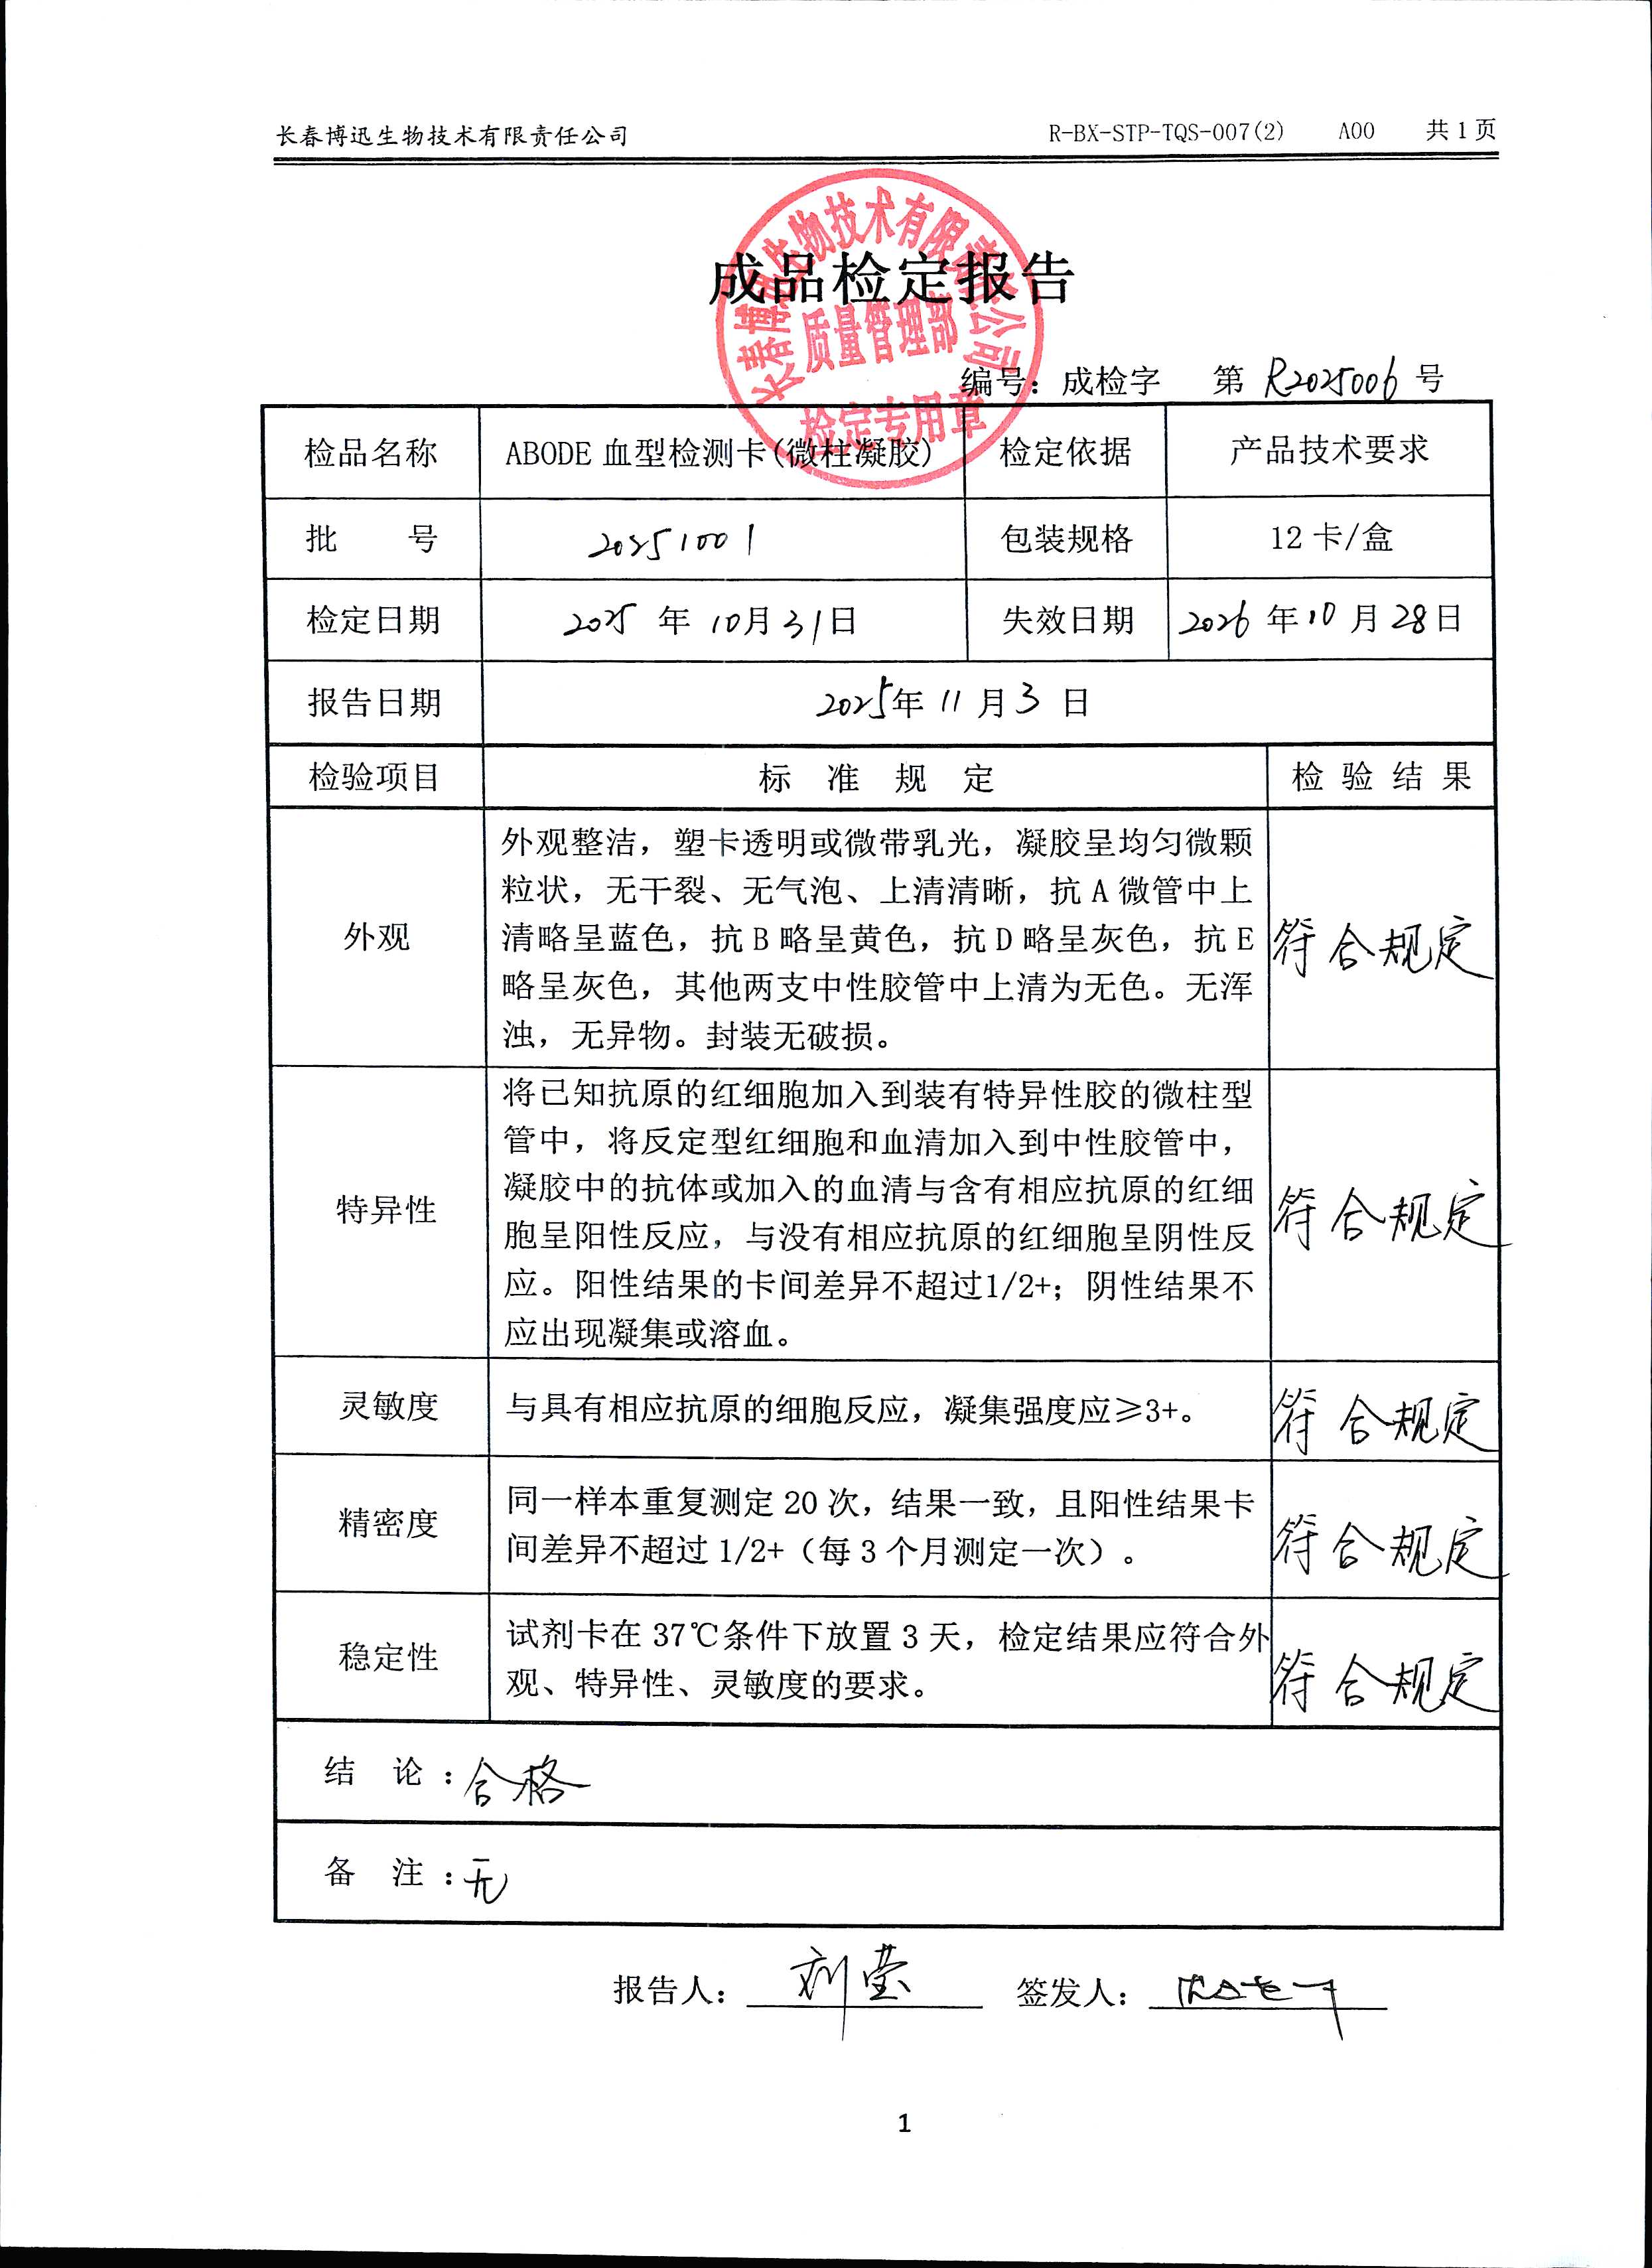 长春博迅生物技术有限责任公司 R-BX-STP-TQS-007(2) A00 共1页
成品检定报告
长春博迅生物技术有限责任公司
质量管理部
检定专用章
编号：成检字 第 R2025006 号
检品名称 ABODE 血型检测卡(微柱凝胶) 检定依据 产品技术要求
批 号 20251001 包装规格 12 卡/盒
检定日期 2025 年 10月 31日 失效日期 2026 年 10 月 28日
报告日期 2025年 11 月 3 日
检验项目 标 准 规 定 检 验 结 果
外观整洁，塑卡透明或微带乳光，凝胶呈均匀微颗
粒状，无干裂、无气泡、上清清晰，抗 A 微管中上
外观 清略呈蓝色，抗 B 略呈黄色，抗 D 略呈灰色，抗 E 符合规定
略呈灰色，其他两支中性胶管中上清为无色。无浑
浊，无异物。封装无破损。
将已知抗原的红细胞加入到装有特异性胶的微柱型
管中，将反定型红细胞和血清加入到中性胶管中，
凝胶中的抗体或加入的血清与含有相应抗原的红细
特异性 胞呈阳性反应，与没有相应抗原的红细胞呈阴性反 符合规定
应。阳性结果的卡间差异不超过1/2+；阴性结果不
应出现凝集或溶血。
灵敏度 与具有相应抗原的细胞反应，凝集强度应≥3+。 符合规定
精密度 同一样本重复测定 20 次，结果一致，且阳性结果卡 符合规定
间差异不超过 1/2+（每 3 个月测定一次）。
稳定性 试剂卡在 37℃条件下放置 3 天，检定结果应符合外 符合规定
观、特异性、灵敏度的要求。
结 论：合格
备 注：无
报告人： 刘莹 签发人：
1